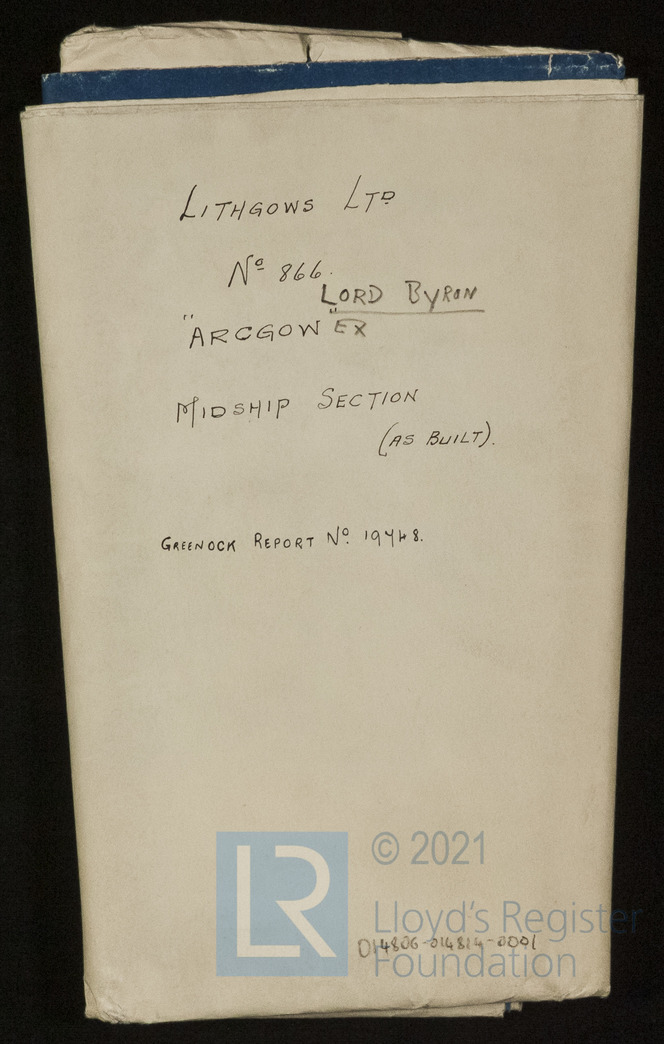 LITHGOWS LTD
No 866.
LORD BYRON
"ARCGOW" EX
MIDSHIP SECTION
(AS BUILT).
GREENOCK REPORT No. 19748.
LR
© 2021
Lloyd's Register
Foundation
014806-014814-0001